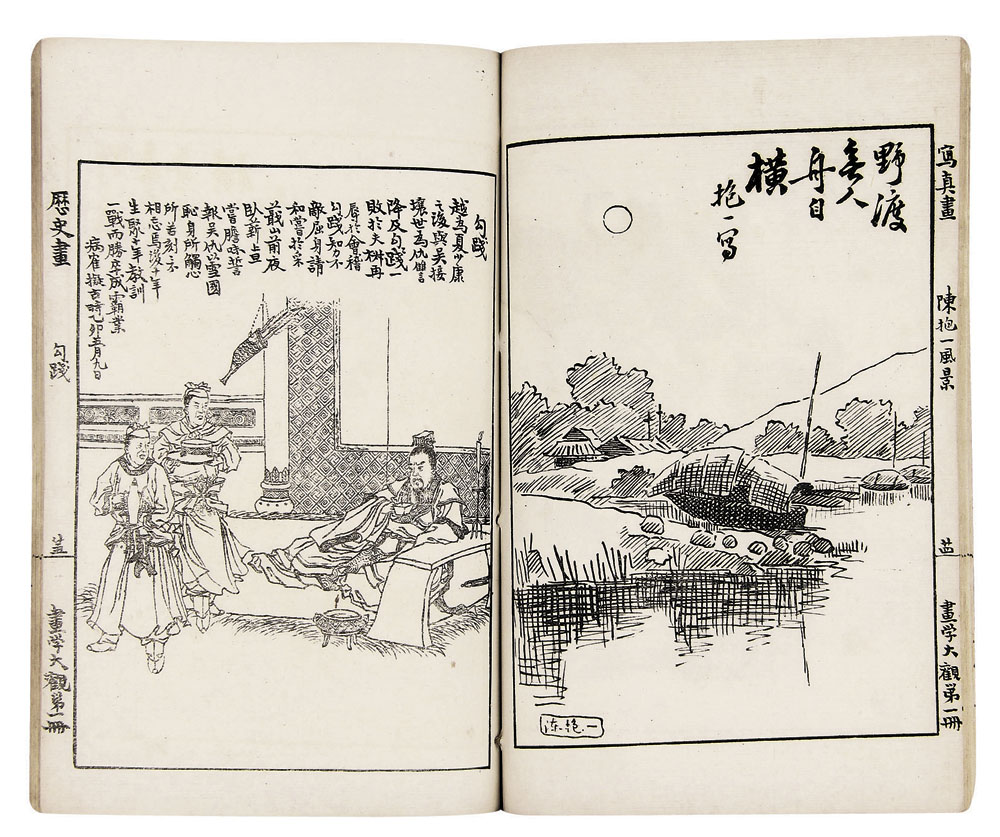 寫真畫
陳抱一風景
畫學大觀第一冊
野渡
無人
舟自
橫
抱一写
陈抱一
勾踐
越為夏少康
之後與吳接
壤世為仇讐
降及勾踐一
敗於夫椒再
辱於會稽
勾踐知力不
敵屈身請
和嘗於采
蕺山前夜
臥薪旦
嘗膽味誓
報吳仇以雪國
恥身所觸心
所苦刻不
相忘焉後十年
生聚十年教訓
一戰而勝卒成霸業
病雀擬古時乙卯五月九日
歷史畫
勾踐
畫學大觀第一冊